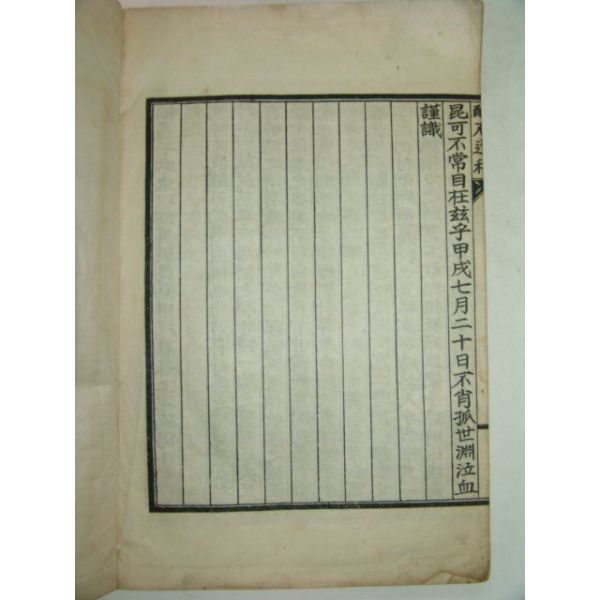 不
昆可不常目在玆乎甲戌七月二十日不肖孤世淵泣血
謹識